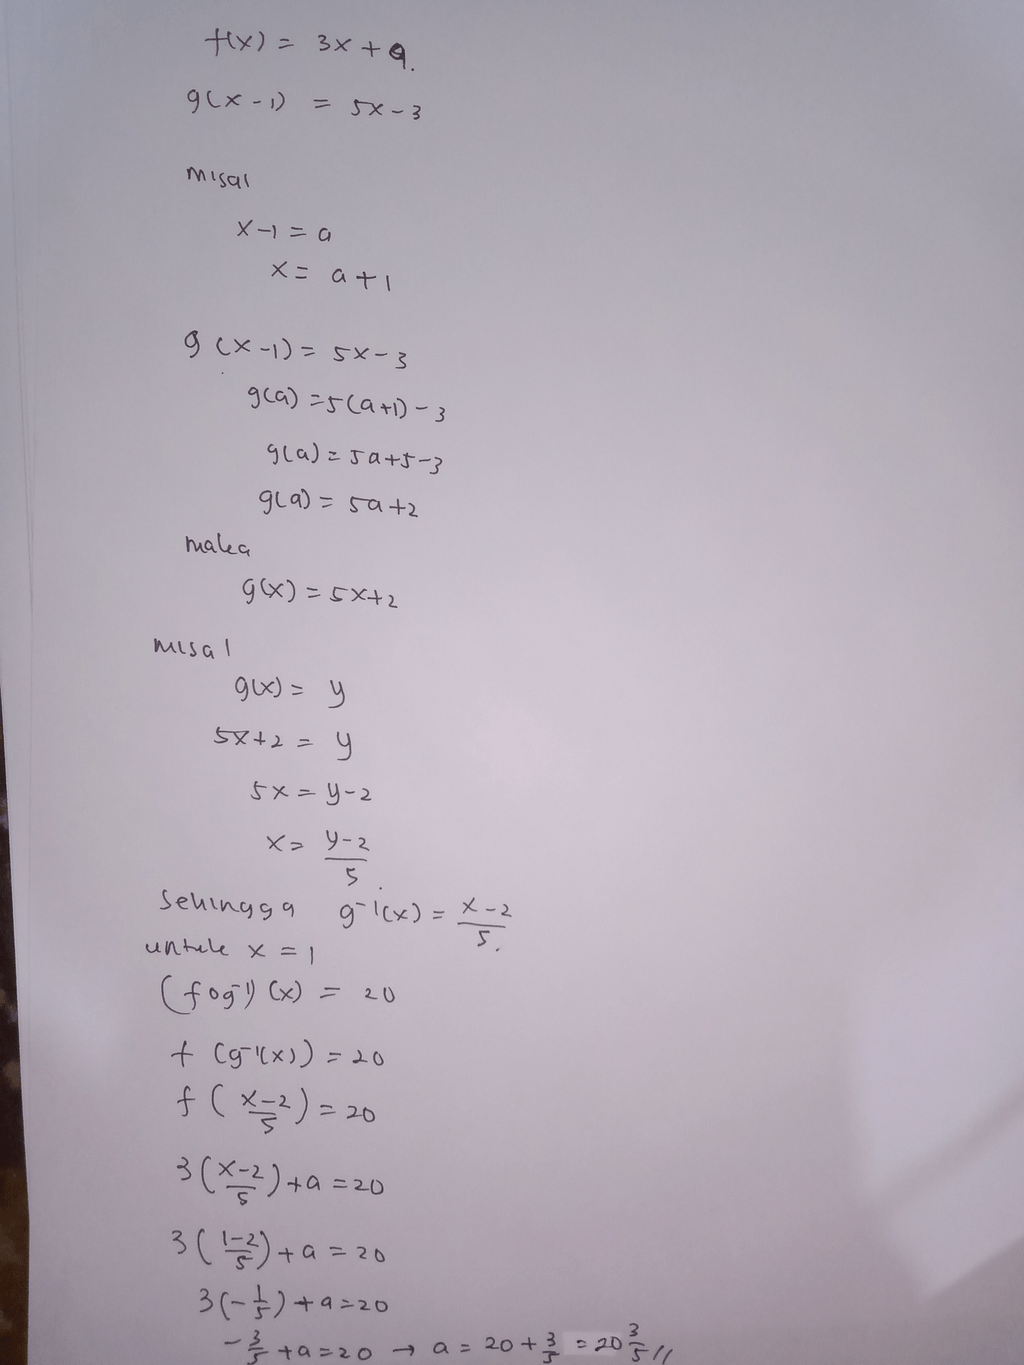 f(x) = 3x + a.
g(x-1) = 5x-3
misal
x-1 = a
x = a+1
g(x-1) = 5x-3
g(a) = 5(a+1)-3
g(a) = 5a+5-3
g(a) = 5a+2
maka
g(x) = 5x+2
misal
g(x) = y
5x+2 = y
5x = y-2
x = (y-2)/5.
Sehingga g⁻¹(x) = (x-2)/5.
untuk x = 1
(fog⁻¹)(x) = 20
f(g⁻¹(x)) = 20
f((x-2)/5) = 20
3((x-2)/5)+a = 20
3((1-2)/5)+a = 20
3(-1/5)+a = 20
-3/5+a = 20 → a = 20+3/5 = 20 3/5 //